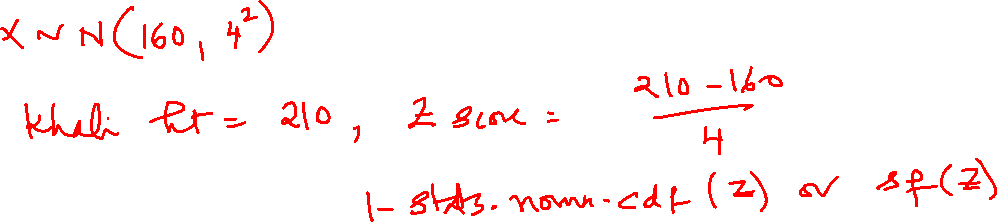 X ~ N(160, 4²)
Khali ht = 210, Z score = (210 - 160) / 4
1 - stats.norm.cdf(Z) or sf(Z)